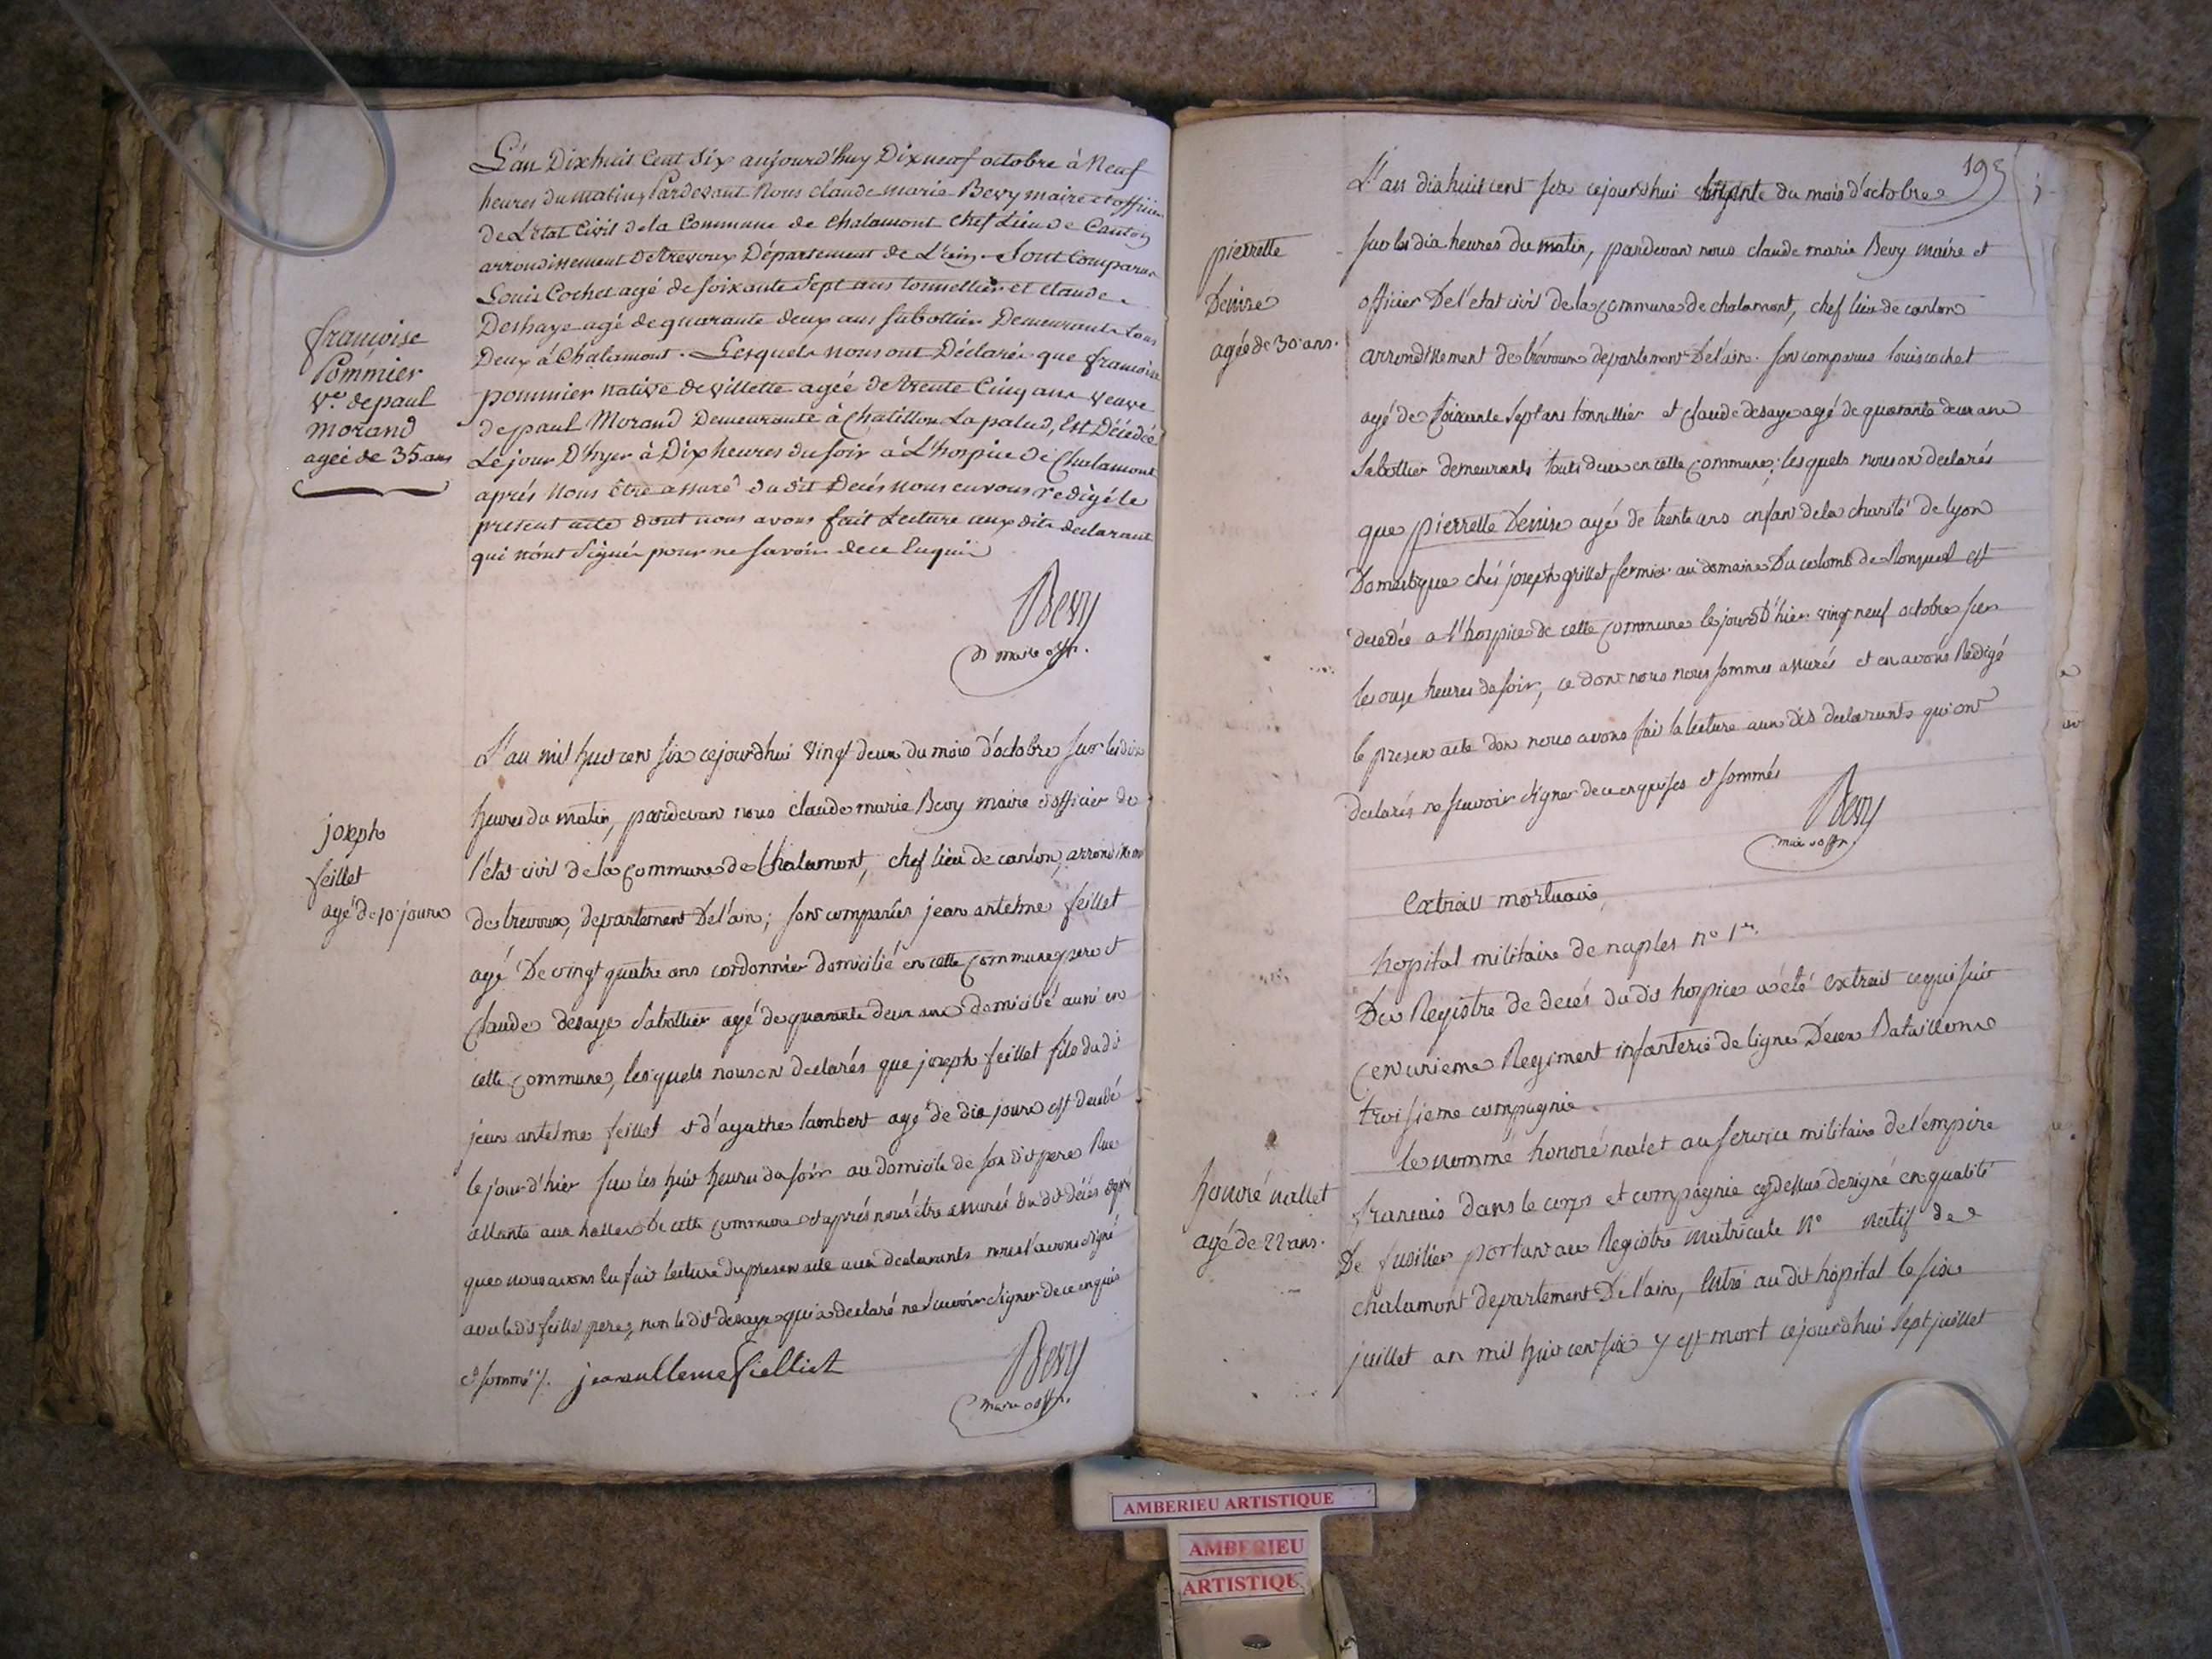 L'an Dixhuit Cent Six aujourd'huy Dixneuf octobre à Neuf
heures du matin, Pardevant Nous claude marie Bevy maire et officier
de L'état Civil de la Commune de Chalamont Chef Lieu de Canton
arrondissement de trevoux Département de L'ain. Sont Comparus
Louis Cochet agé de soixante Sept ans tonnellier et claude
Deshaye agé de quarante deux ans Sabottier Demeurants tous
Deux à Chalamont. Lesquels nous ont Déclarés que françoise
françoise
Pommier
Ve. de paul
morand
ageé de 35 ans
pommier native de villette ageé de trente Cinq ans veuve
de paul Morand Demeurante à Chatillon Lapalud, Est Décedée
Le jour D'hyer à Dix heures du soir à L'hospice de Chalamont
aprés Nous être assuré du dit Decés nous en avons redigé le
present acte dont nous avons fait Lecture aux dits declarants
qui n'ont Signés pour ne savoir de ce Enquis
Bevy
maire offr.
L'an mil huit cent six cejourdhui vingt deux du mois d'octobre sur les dix
heures du matin, pardevant nous claude marie Bevy maire et officier de
joseph
feillet
agé de 10 jours
l'état civil de la commune de Chalamont, chef lieu de canton, arrondissement
de trevoux, departement De l'ain; sont comparus jean antelme feillet
agé De vingt quatre ans cordonnier domicilié en cette commune pere et
claude desaye Sabottier agé de quarante deux ans domicilié aussi en
cette commune, lesquels nous ont declarés que joseph feillet fils du dit
jean antelme feillet et d'agathe lambert agé de dix jours est decedé
le jour d'hier sur les huit heures du soir au domicile de son dit pere Rue
allante aux halles De cette commune et aprés nous être assurés du dit décés
que nous avons lu fait lecture du present acte aux declarants nous l'avons signé
avec le dit feillet pere, non le dit desaye qui a declaré ne savoir signer de ce enquis
et sommé
Bevy
maire offr.
195
L'an dix huit cent six cejourdhui trente du mois d'octobre
pierrette
Denise
ageé de 30 ans.
sur les dix heures du matin, pardevant nous claude marie Bevy maire et
officier De l'etat civil de la commune de chalamont, chef lieu de canton
arrondissement de trevoux departement De l'ain. sont comparus louis cochet
agé de soixante Sept ans tonnellier et claude desaye agé de quarante deux ans
Sabottier demeurants touts deux en cette commune; lesquels nous ont declarés
que pierrette Denise agé de trente ans enfant de la charité de lyon
Domestique chés joseph grillet fermier au domaine Du colomb de Ronzuel est
decedée a l'hospice de cette commune le jour D'hier vingt neuf octobre sur
les onze heures du soir, ce dont nous nous sommes assurés et en avons Redigé
le present acte dont nous avons fait la lecture aux dits declarants qui ont
declarés ne savoir signer de ce enquises et sommés
Bevy
maire offr.
Extrait mortuaire,
hopital militaire de naples no 1er.
Du Registre de decés du dit hospice a été extrait ce qui suit
Cent unieme Regiment infanterie de ligne Deux Bataillon
troisieme compagnie
honoré nallet
agé de 22 ans.
le nommé honoré nalet au service militaire de l'empire
francais dans le corps et compagnie cydessus designé en qualité
De fusilier portant au Registre matricule No natif de
chalamont departement De l'ain, Entré au dit hôpital le six
juillet an mil huit cent six y est mort cejourdhui sept juillet
AMBERIEU ARTISTIQUE
AMBERIEU
ARTISTIQUE